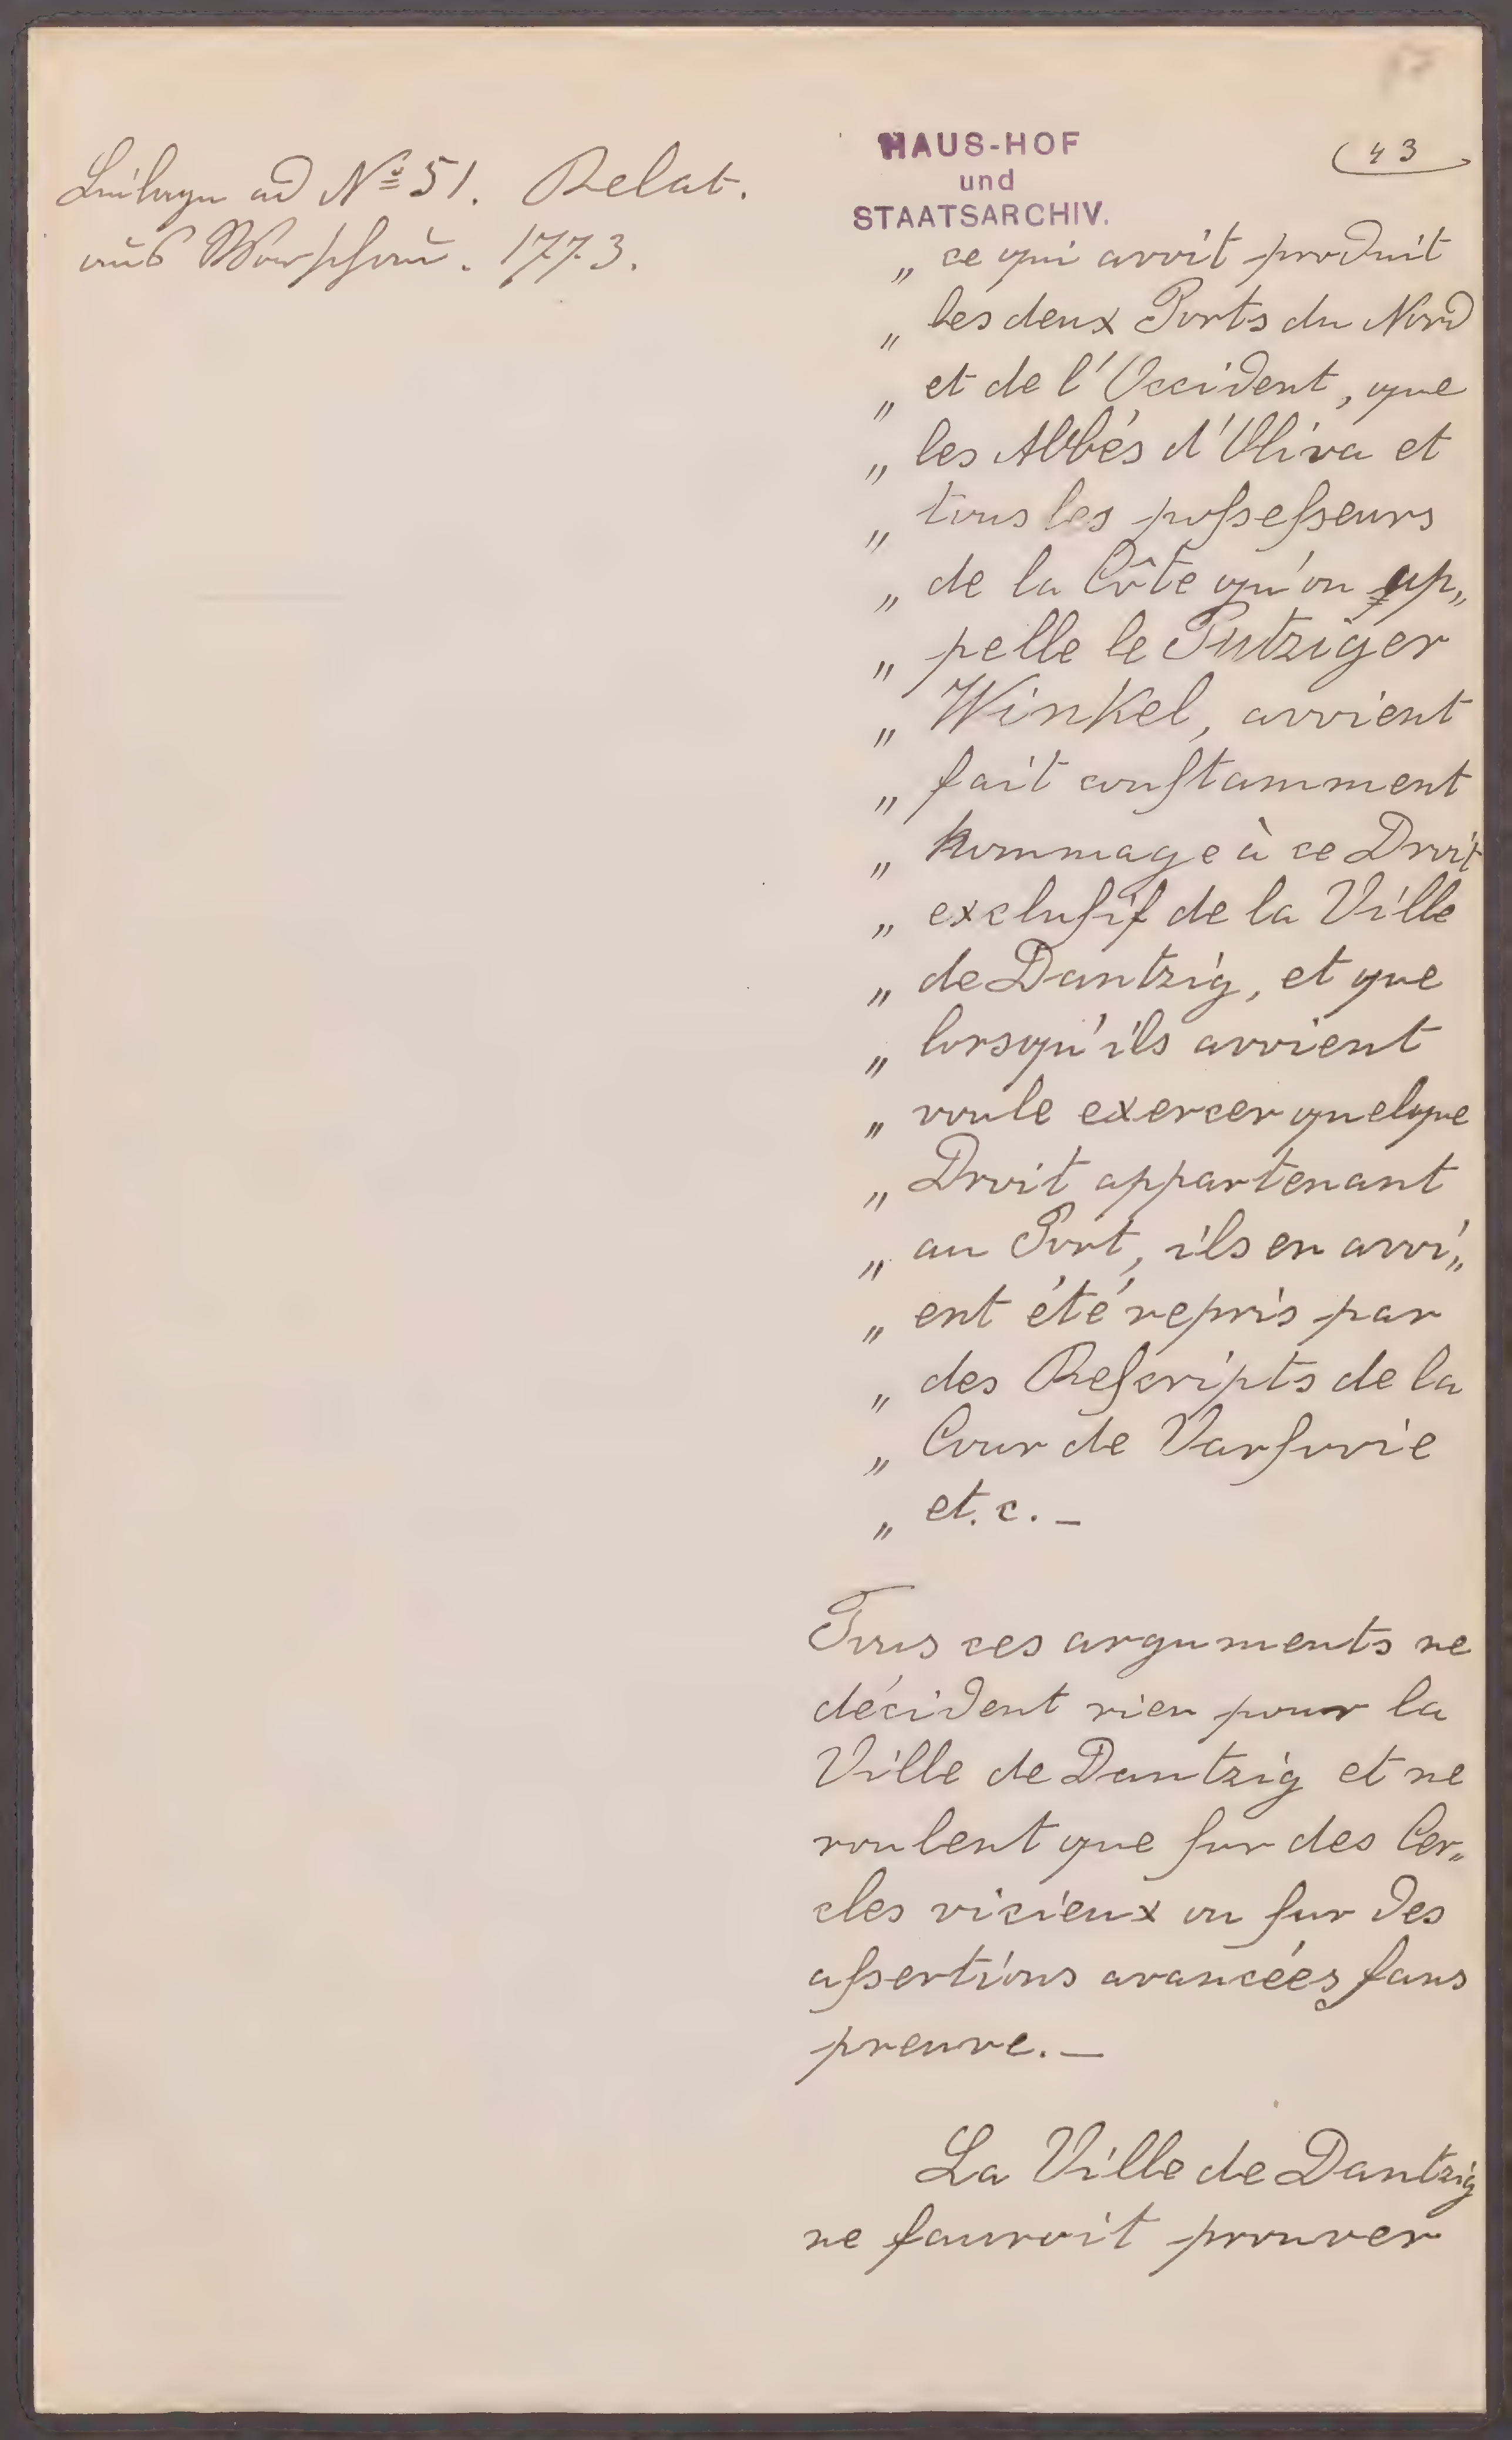 Beilagen ad Nº 51. Relat.
aus Warschau. 1773.
HAUS-HOF
und
STAATSARCHIV.
43
„ ce qui avoit produit
„ les deux Ports du Nord
„ et de l'Occident, que
„ les Abbés d'Oliva et
„ tous les poſseſseurs
„ de la Côte qu'on ap„
„ pelle le Putziger
„ Winkel, avoient
„ fait conſtamment
„ hommage à ce Droit
„ excluſif de la Ville
„ de Dantzig, et que
„ lorsqu'ils avoient
„ voule exercer quelque
„ Droit appartenant
„ au Port, ils en avoi„
„ ent été repris par
„ des Reſcripts de la
„ Cour de Varſovie
„ et. c. _
Tous ces arguments ne
décident rien pour la
Ville de Dantzig et ne
roulent que ſur des Cer„
cles vicieux ou ſur des
aſsertions avancées ſans
preuve. _
La Ville de Dantzig
ne ſauroit prouver